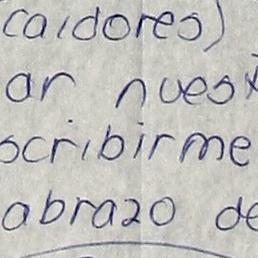 caidores)
ar nuest
scribirme
abrazo de